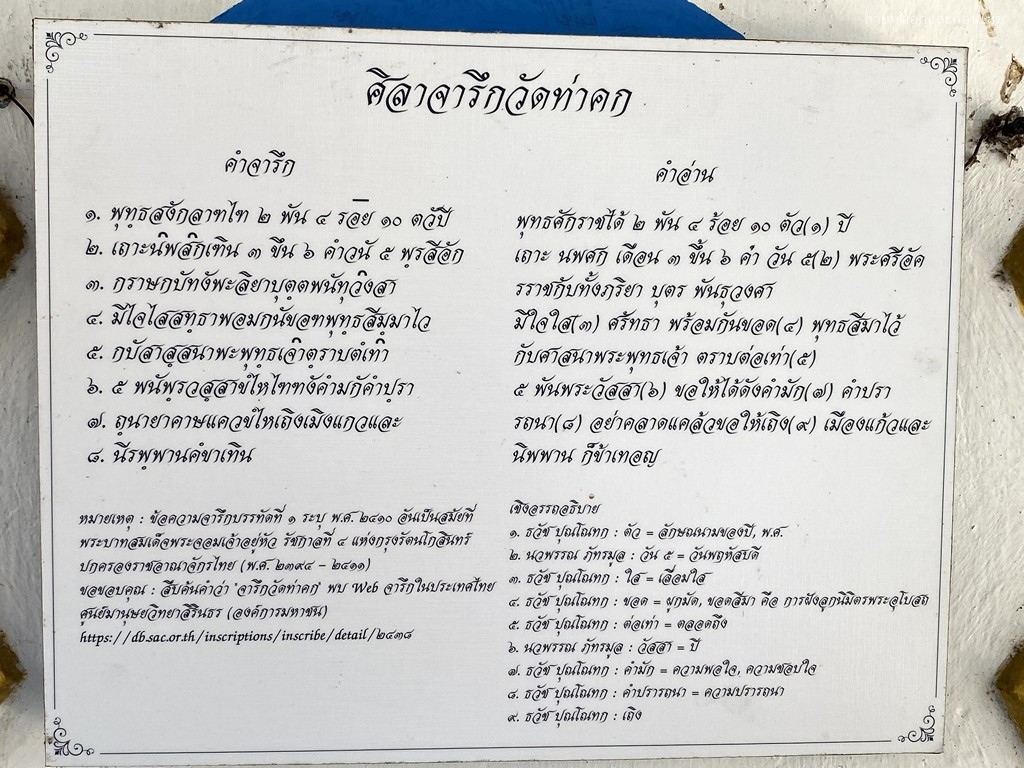 ศิลาจารึกวัดท่าคก
คำจารึก
๑. พุทฺธสงฺกลาทไท ๒ พัน ๔ รอ่ย ๑๐ ตวัปี
๒. เถาะนํพสิกเทิน ๓ ขึน ๖ คำวนั ๕ พฺรสีอัก
๓. กราษกบัทังพะลิยาบุตฺตพนัทฺวิงสา
๔. มีไจไสสทฺธาพอมกนัขอฑพุทฺธสีมฺมาไว
๕. กบัสาสฺสนาพะพุทฺธเจ้าตฺราบตํเท้า
๖. ๕ พนัพฺรวสฺสาขํไหไทฑงัคำมกัคำปฺรา
๗. ถฺนายาคาษแควขํไหเถิงเมิงแกวและ
๘. นีรพฺพานคํขาเทิน
คำอ่าน
พุทธศักราชได้ ๒ พัน ๔ ร้อย ๑๐ ตัว(๑) ปี
เถาะ นพศก เดือน ๓ ขึ้น ๖ ค่ำ วัน ๕(๒) พระศรีอัค
รราชกับทั้งภริยา บุตร พันธุวงศา
มีใจใส(๓) ศรัทธา พร้อมกันขอด(๔) พุทธสีมาไว้
กับศาสนาพระพุทธเจ้า ตราบต่อเท่า(๕)
๕ พันพระวัสสา(๖) ขอให้ได้ดังคำมัก(๗) คำปรา
รถนา(๘) อย่าคลาดแคล้วขอให้เถิง(๙) เมืองแก้วและ
นิพพาน ก็ข้าเทอญ
หมายเหตุ : ข้อความจารึกบรรทัดที่ ๑ ระบุ พ.ศ. ๒๔๑๐ อันเป็นสมัยที่
พระบาทสมเด็จพระจอมเจ้าอยู่หัว รัชกาลที่ ๔ แห่งกรุงรัตนโกสินทร์
ปกครองราชอาณาจักรไทย (พ.ศ. ๒๓๙๔ – ๒๔๑๑)
ขอขอบคุณ : สืบค้นคำว่า "จารึกวัดท่าคก" พบ Web จารึกในประเทศไทย
ศูนย์มานุษยวิทยาสิรินธร (องค์การมหาชน)
https://db.sac.or.th/inscriptions/inscribe/detail/๒๔๓๘
เชิงอรรถอธิบาย
๑. ธวัช ปุณโณทก : ตัว = ลักษณนามของปี, พ.ศ.
๒. นวพรรณ ภัทรมูล : วัน ๕ = วันพฤหัสบดี
๓. ธวัช ปุณโณทก : ใส = เลื่อมใส
๔. ธวัช ปุณโณทก : ขอด = ผูกมัด, ขอดสีมา คือ การฝังลูกนิมิตรพระอุโบสถ
๕. ธวัช ปุณโณทก : ต่อเท่า = ตลอดถึง
๖. นวพรรณ ภัทรมูล : วัสสา = ปี
๗. ธวัช ปุณโณทก : คำมัก = ความพอใจ, ความชอบใจ
๘. ธวัช ปุณโณทก : คำปรารถนา = ความปรารถนา
๙. ธวัช ปุณโณทก : เถิง